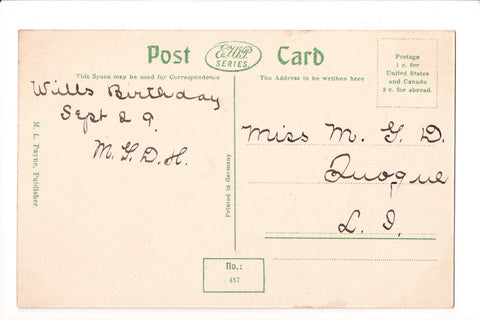 Post Card
E.W.P.
SERIES.
This Space may be used for Correspondence
The Address to be written here
Postage
1 c. for
United States
and Canada
2 c. for abroad.
Wills Birthday
Sept 29.
M.G.D.H.
Miss M. G. D.
Quogue
L. I.
M. L. Payne, Publisher.
Printed in Germany
No.:
457